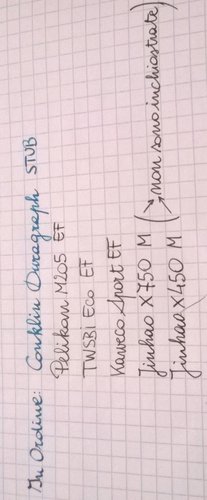 In Ordine: Conklin Duragraph STUB
Pelikan M205 EF
TWSBI Eco EF
Kaweco Sport EF
Jinhao X750 M (→ non sono inchiostrate)
Jinhao X450 M